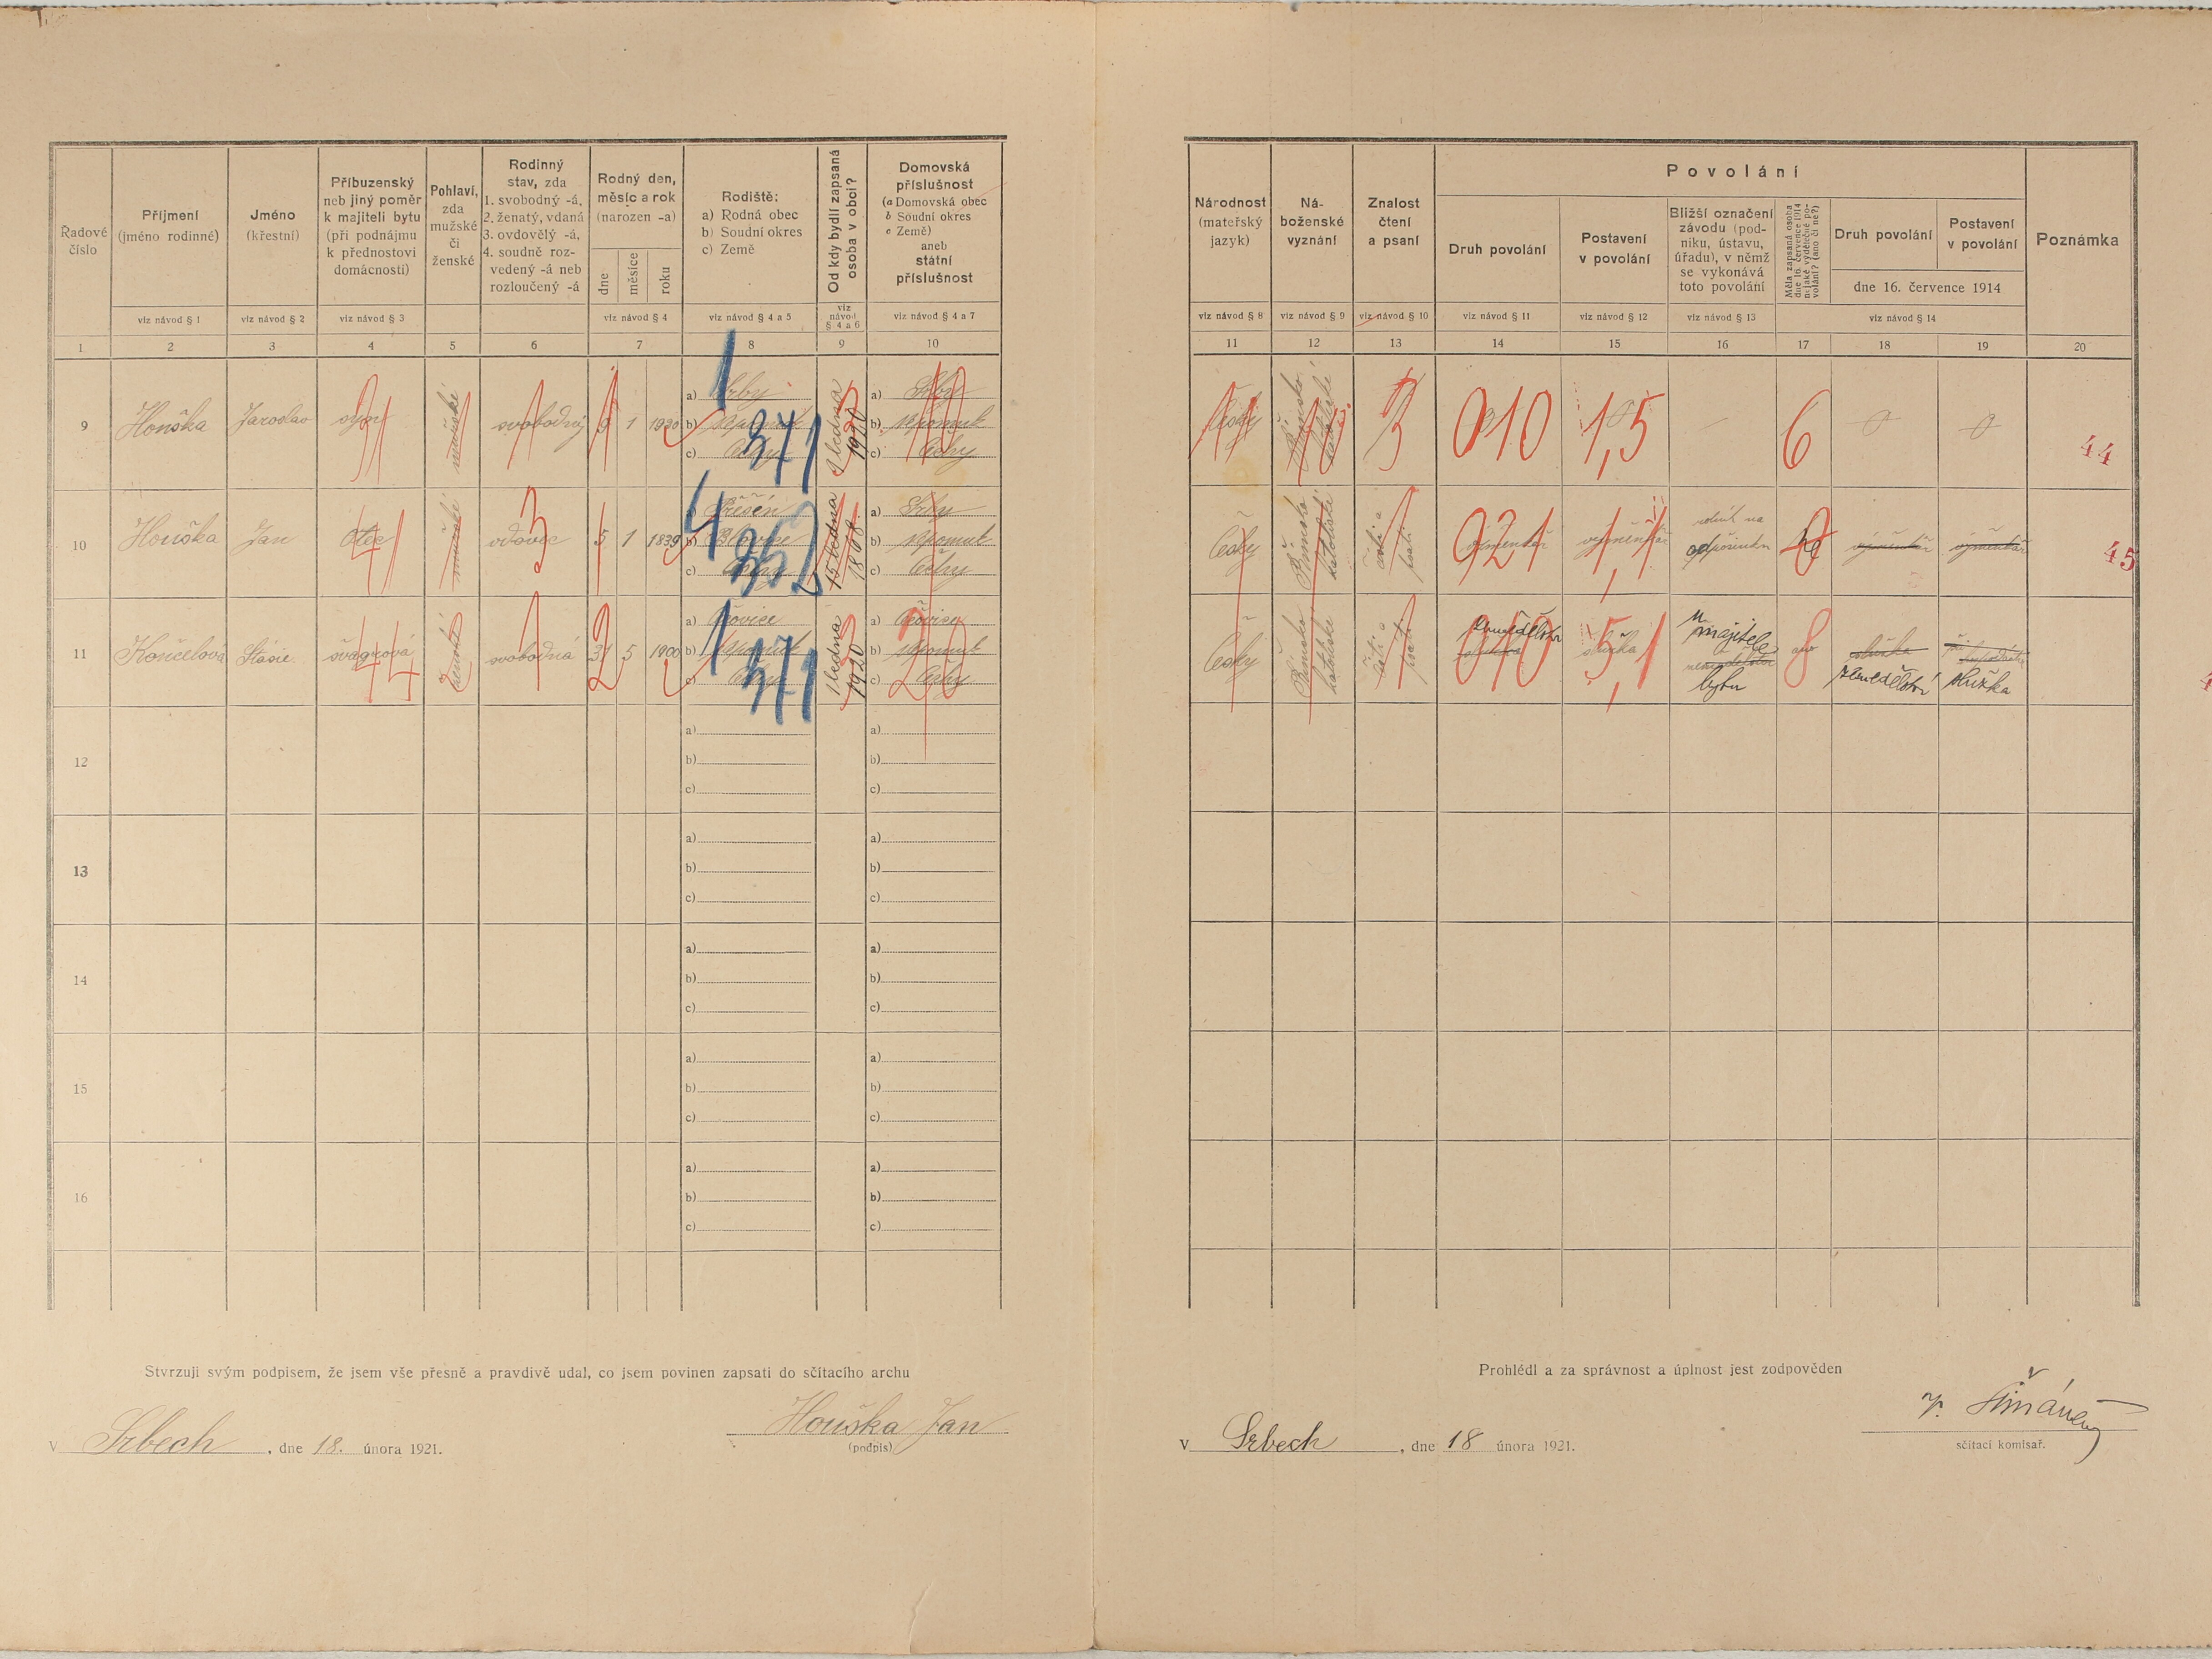 Řadové číslo
Příjmení (jméno rodinné)
Jméno (křestní)
Příbuzenský neb jiný poměr k majiteli bytu (při podnájmu k přednostovi domácnosti)
Pohlaví, zda mužské či ženské
Rodinný stav, zda 1. svobodný -á, 2. ženatý, vdaná 3. ovdovělý -á, 4. soudně rozvedený -á neb rozloučený -á
Rodný den, měsíc a rok (narozen -a)
dne měsíce roku
Rodiště: a) Rodná obec b) Soudní okres c) Země
Od kdy bydlí zapsaná osoba v obci?
Domovská příslušnost (a Domovská obec b Soudní okres c Země) aneb státní příslušnost
viz návod § 1
viz návod § 2
viz návod § 3
viz návod § 4
viz návod § 4 a 5
viz návod § 4 a 6
viz návod § 4 a 7
1 2 3 4 5 6 7 8 9 10
Národnost (mateřský jazyk)
Náboženské vyznání
Znalost čtení a psaní
Povolání
Druh povolání
Postavení v povolání
Bližší označení závodu (podniku, ústavu, úřadu), v němž se vykonává toto povolání
Měla zapsaná osoba dne 16. července 1914 nějaké výdělečné povolání? (ano či ne?)
Druh povolání
Postavení v povolání
dne 16. července 1914
Poznámka
viz návod § 8
viz návod § 9
viz návod § 10
viz návod § 11
viz návod § 12
viz návod § 13
viz návod § 14
11 12 13 14 15 16 17 18 19 20
9 Houška Jaroslav syn mužské svobodný 9 1 1920
a) Srby
b) Nepomuk
c) Čechy
1
371
9 ledna 1920
a) Srby
b) Nepomuk
c) Čechy
Česky Římsko katolické
3 010 1,5 6
44
10 Houška Jan otec mužské vdovec 5 1 1839
b) Blovice
c) Čechy
4
362
15 ledna 1868
a) Srby
b) Nepomuk
c) Čechy
Česky Římsko katolické čísti a psáti
výměnkář výměnkář
921 1,1
ne výměnkář výměnkář
45
11 Končelová Stásie švagrová ženské svobodná 31 5 1900
b) Nepomuk
c) Čechy
1
371
1 ledna 1920
b) Nepomuk
c) Čechy
20
Česky Římsko katolické čísti a psáti
zemědělství
služka
010 5,1
u majitele bytu
ano 8
služka
zemědělství služka
12
a)
b)
c)
a)
b)
c)
13
a)
b)
c)
a)
b)
c)
14
a)
b)
c)
a)
b)
c)
15
a)
b)
c)
a)
b)
c)
16
a)
b)
c)
a)
b)
c)
Stvrzuji svým podpisem, že jsem vše přesně a pravdivě udal, co jsem povinen zapsati do sčítacího archu
Houška Jan
(podpis)
v Srbech, dne 18. února 1921.
Prohlédl a za správnost a úplnost jest zodpověden
v Srbech, dne 18 února 1921.
sčítací komisař.